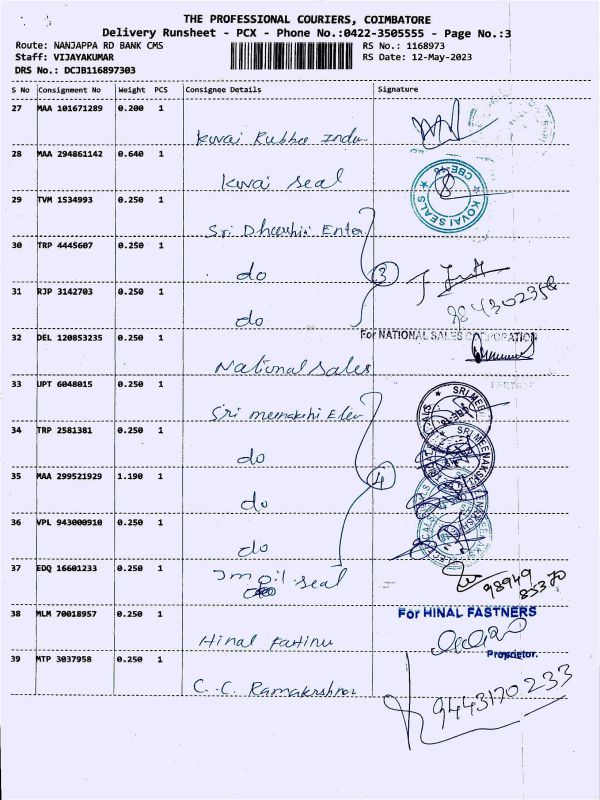 THE PROFESSIONAL COURIERS, COIMBATORE
Delivery Runsheet - PCX - Phone No.:0422-3505555 - Page No.:3
Route: NANJAPPA RD BANK CMS
RS No.: 1168973
Staff: VIJAYAKUMAR
RS Date: 12-May-2023
DRS No.: DCJB116897303
S No Consignment No Weight PCS Consignee Details Signature
27 MAA 101671289 0.200 1
Kovai Rubber Indu
28 MAA 294861142 0.640 1
Kovai Seal
KOVAI SEALS CBE-18
29 TVM 1534993 0.250 1
Sri Enter
30 TRP 4445607 0.250 1
do
3
31 RJP 3142703 0.250 1
do
32 DEL 120853235 0.250 1
For NATIONAL SALES CORPORATION
National Sales
PARTNER
33 UPT 6048015 0.250 1
Sri meenakshi Elec
34 TRP 2581381 0.250 1
do
SRI MEENAKSHI
35 MAA 299521929 1.190 1
do
4
36 VPL 943000910 0.250 1
do
37 EDQ 16601233 0.250 1
oil seal
98949
85370
38 MLM 70018957 0.250 1
For HINAL FASTNERS
Hinal
Proprietor.
39 MTP 3037958 0.250 1
C. C. Ramakrishnan
9443170233